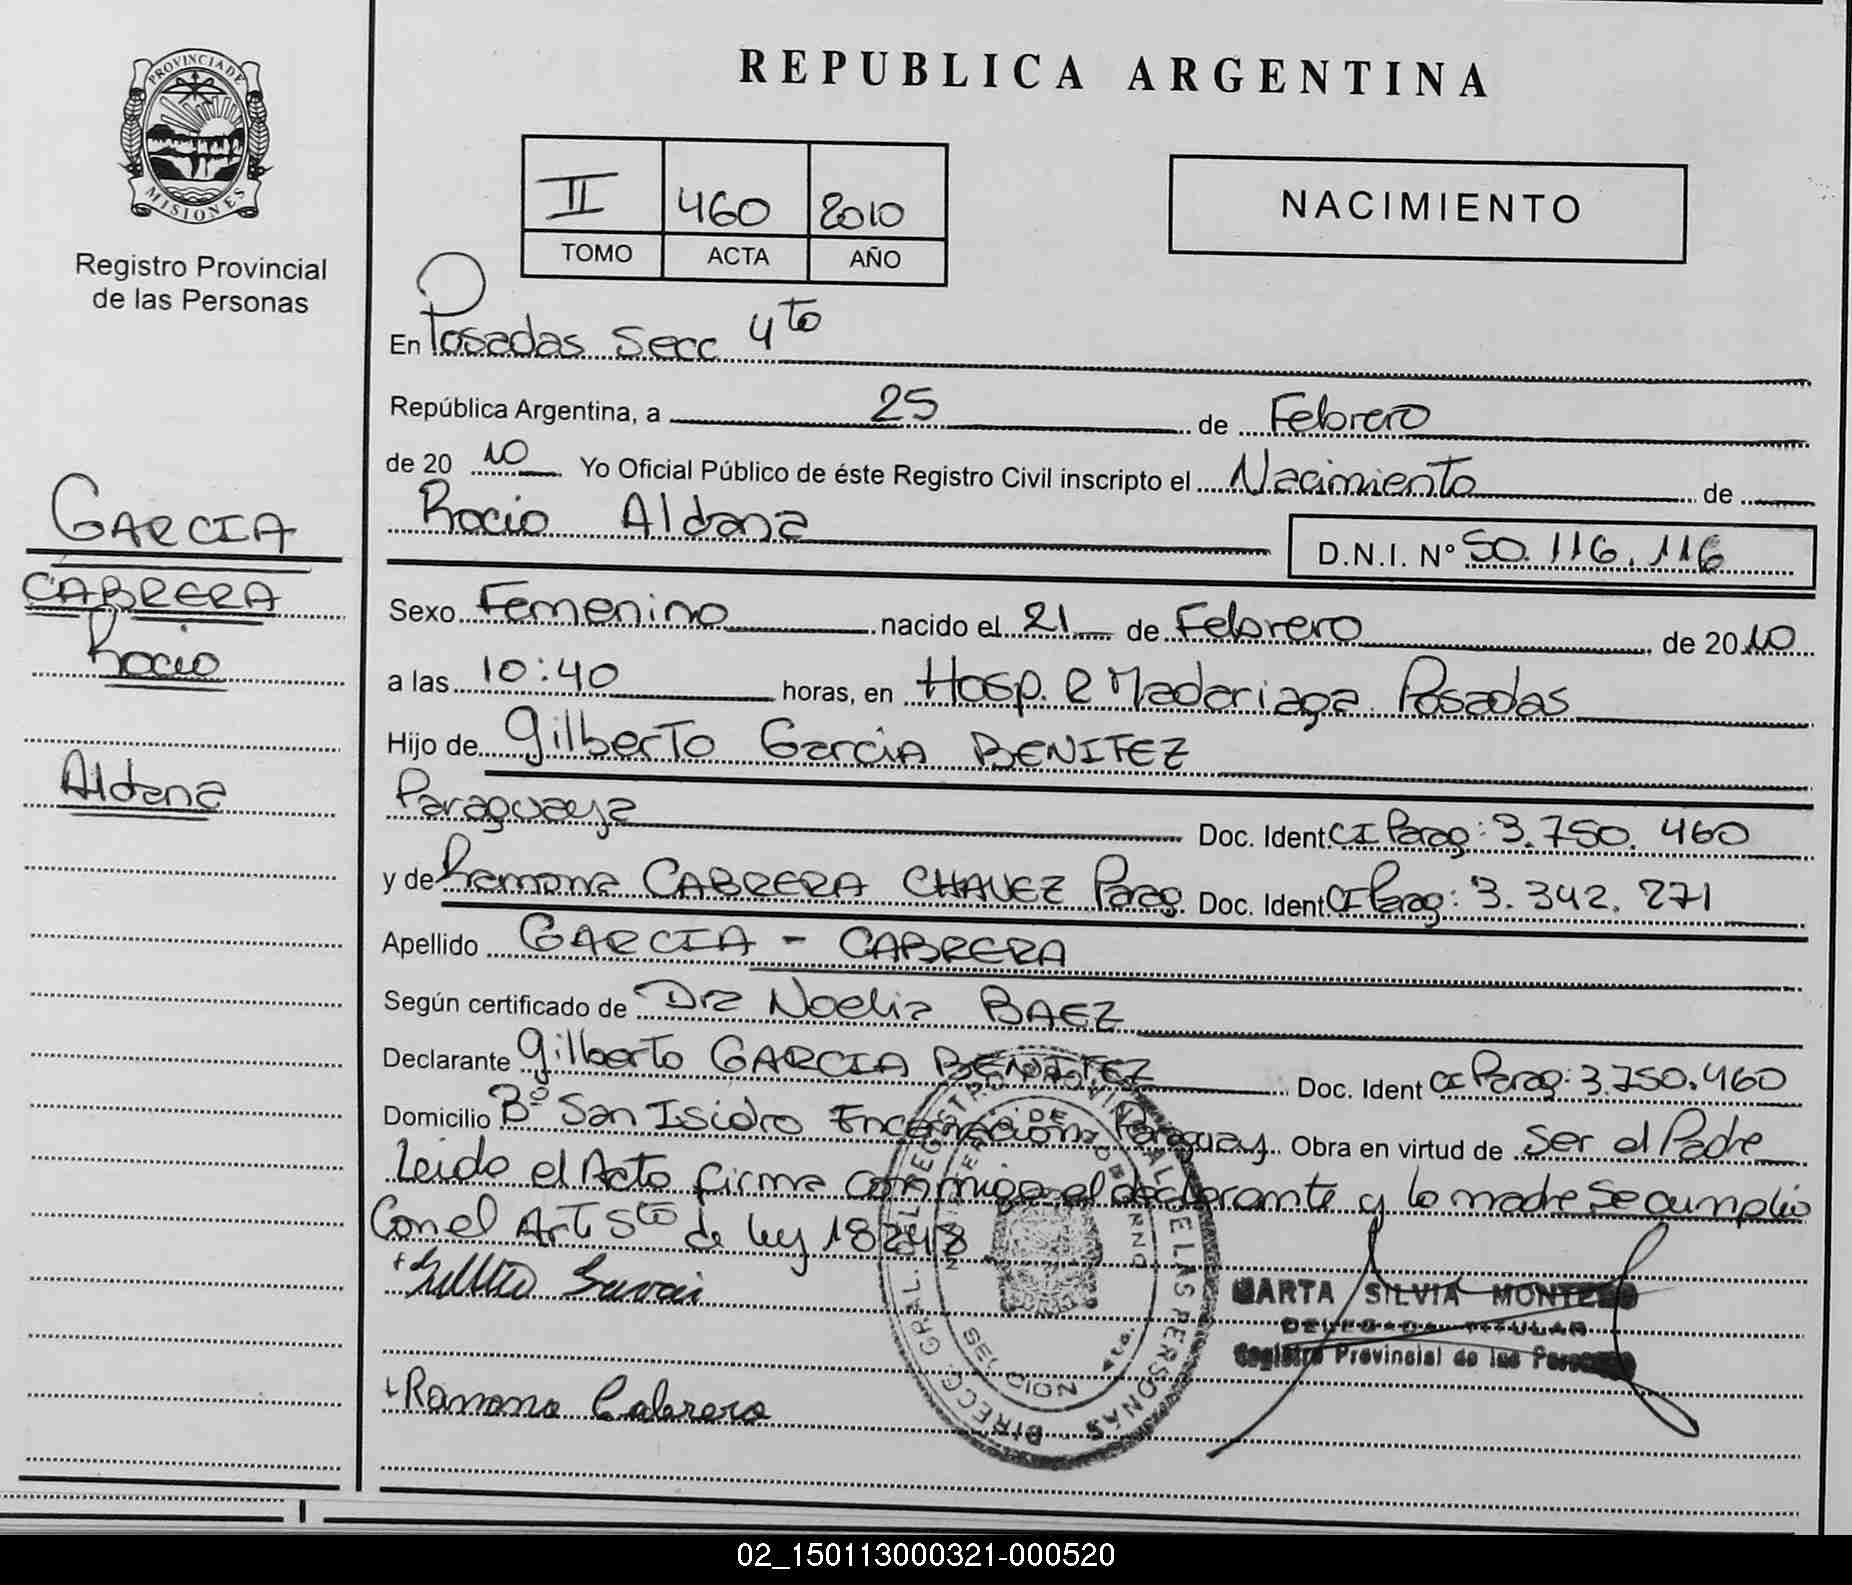 PROVINCIA DE
MISIONES
Registro Provincial
de las Personas
GARCIA
CABRERA
Rocio
Aldana
REPUBLICA ARGENTINA
II 460 2010
TOMO ACTA AÑO
NACIMIENTO
En Posadas Secc 4to
República Argentina, a 25 de Febrero
de 2010 Yo Oficial Público de éste Registro Civil inscripto el Nacimiento de
Rocio Aldana D.N.I. Nº 50.116.116
Sexo Femenino nacido el 21 de Febrero de 2010
a las 10:40 horas, en Hosp. R Madariaga Posadas
Hijo de Gilberto Garcia BENITEZ
Paraguaya Doc. Ident. CI Parag: 3.750.460
y de Ramona CABRERA CHAVEZ Parag. Doc. Ident. CI Parag: 3.342.271
Apellido GARCIA - CABRERA
Según certificado de Dra Noelia BAEZ
Declarante Gilberto GARCIA BENITEZ Doc. Ident CI Parag: 3.750.460
Domicilio Bº San Isidro Encarnacion Paraguay. Obra en virtud de Ser el Padre
Leida el Acta firma conmigo el declarante y la madre Se cumplio
Con el Art 5to de ley 18248
DIRECC. GRAL. DEL REGISTRO PROVINCIAL DE LAS PERSONAS
SECCION 4ta.
MARTA SILVIA MONTERO
DELEGADA TITULAR
Registro Provincial de las Personas
Ramona Cabrera
02_150113000321-000520